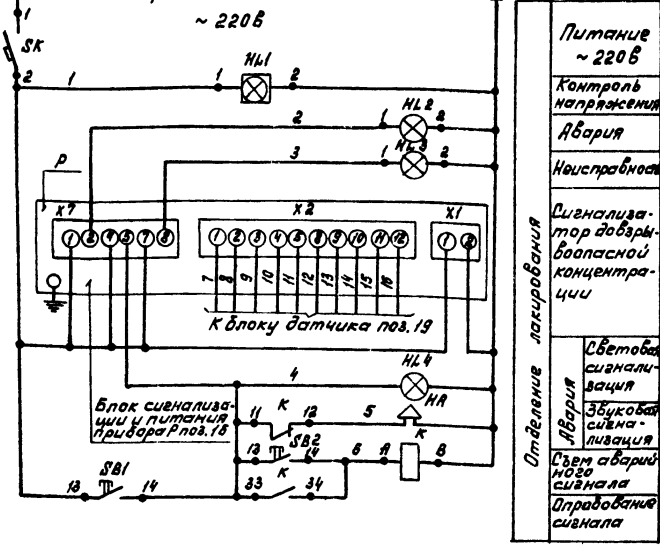 ~ 220 В
1
SK
2
1
1
HL1
2
2
1
HL2
2
3
1
HL3
2
P
X7
X2
X1
1 2 4 5 7 8
1 2 3 4 5 8 9 10 11 12
1 2
7 8 9 10 11 12 13 14 15 16
К блоку датчика поз. 19
HL4
4
HA
Блок сигнализа-
ции и питания
прибора P поз. 18
11
K
12
5
K
13
SB2
14
6
A
B
K
33
34
SB1
13
14
Отделение лакирования
Питание
~ 220 В
Контроль
напряжения
Авария
Неисправность
Сигнализа-
тор довзры-
воопасной
концентра-
ции
Авария
Световая
сигнали-
зация
Звуковая
сигна-
лизация
Съем аварий-
ного
сигнала
Опробование
сигнала